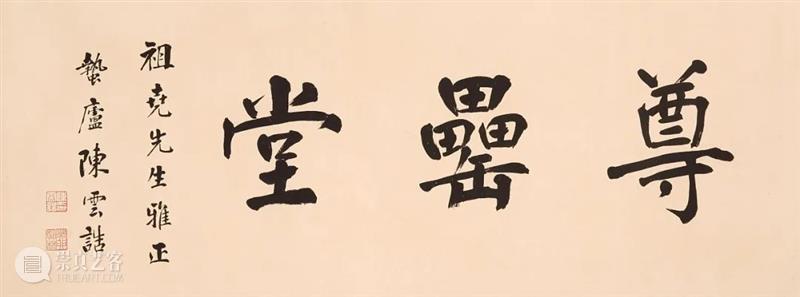 尊罍堂
祖堯先生雅正
蟄廬陳雲誥
崇真艺客
TRUEART.COM